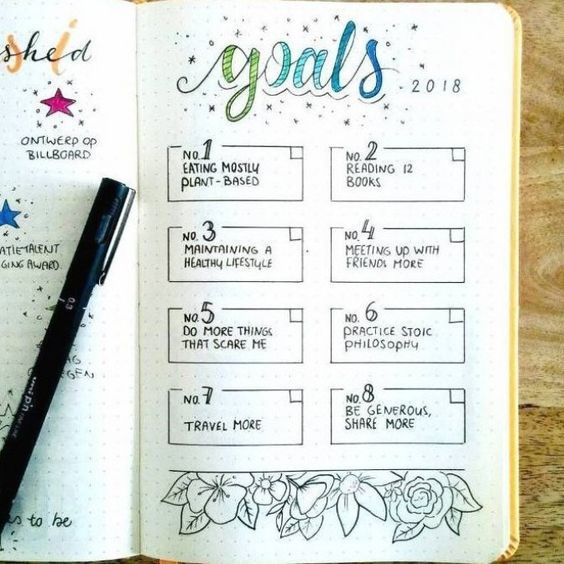 shed
ONTWERP OP
BILLBOARD
goals
- 2018
NO. 1
EATING MOSTLY
PLANT-BASED
NO. 2
READING 12
BOOKS
NO. 3
MAINTAINING A
HEALTHY LIFESTYLE
NO. 4
MEETING UP WITH
FRIENDS MORE
NO. 5
DO MORE THINGS
THAT SCARE ME
NO. 6
PRACTICE STOIC
PHILOSOPHY
NO. 7
TRAVEL MORE
NO. 8
BE GENEROUS,
SHARE MORE
ATIETALENT
GING AWARD
0.3
uni pin FINE LINE
GEGEN
s to be